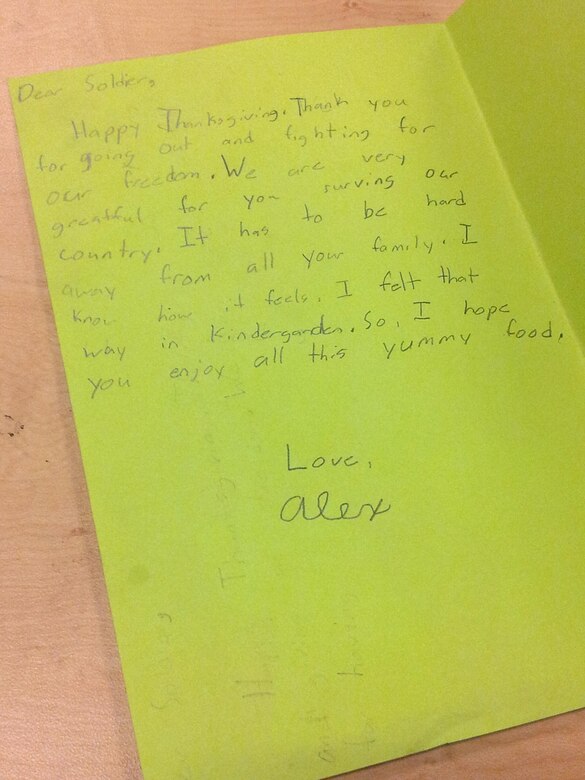 Dear Soldier,
Happy Thanksgiving. Thank you
for going out and fighting for
our freedom. We are very
greatful for you surving our
country. It has to be hard
away from all your family. I
know how it feels. I felt that
way in kindergarden. So, I hope
you enjoy all this yummy food.
Love,
Alex